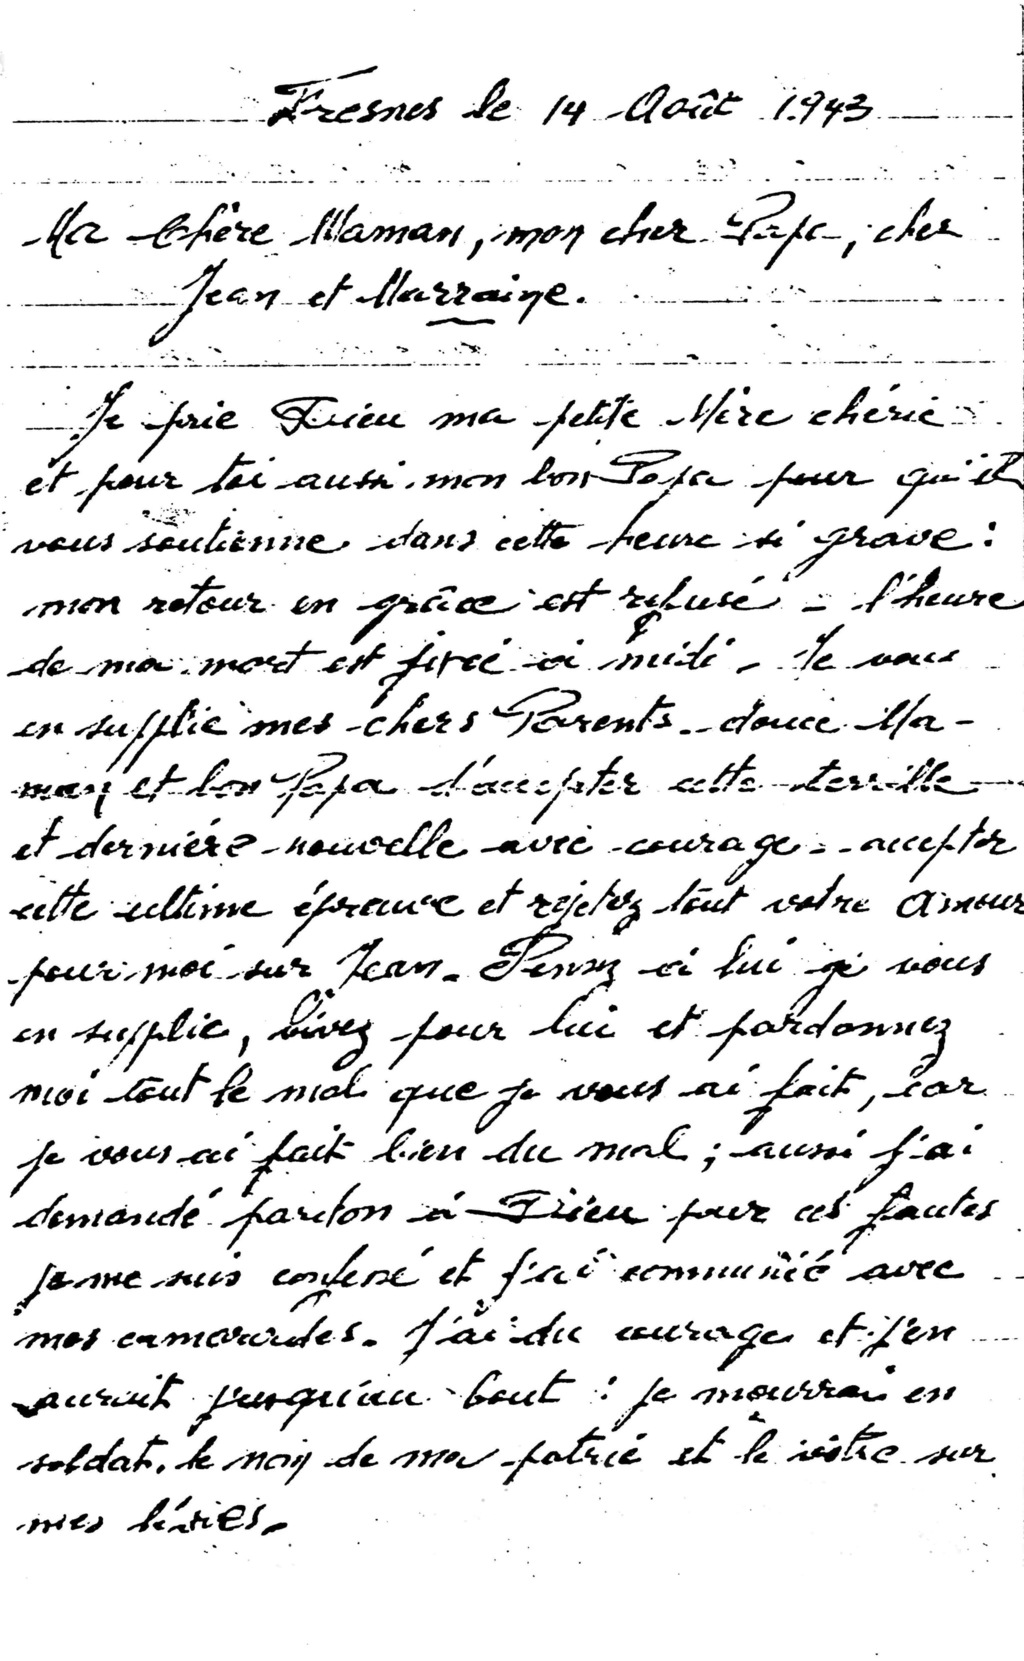 Fresnes le 14 Août 1943
Ma Chère Maman, mon cher Papa, cher
Jean et Marraine.
Je prie Dieu ma petite Mère chérie
et pour toi aussi mon bon Papa pour qu'il
vous soutienne dans cette heure si grave :
mon retour en grâce est refusé - l'heure
de ma mort est fixée à midi - Je vous
en supplie mes chers Parents - douce Ma-
man et bon Papa d'accepter cette terrible
et dernière nouvelle avec courage - accepter
cette ultime épreuve et rejetez tout votre amour
pour moi sur Jean - Pensez à lui je vous
en supplie, vivez pour lui et pardonnez
moi tout le mal que je vous ai fait, car
je vous ai fait bien du mal ; aussi j'ai
demandé pardon à Dieu pour ces fautes
je me suis confessé et j'ai communié avec
mes camarades - J'ai du courage et j'en
aurait jusqu'au bout : je mourrai en
soldat, le nom de ma patrie et le vôtre sur
mes lèvres -